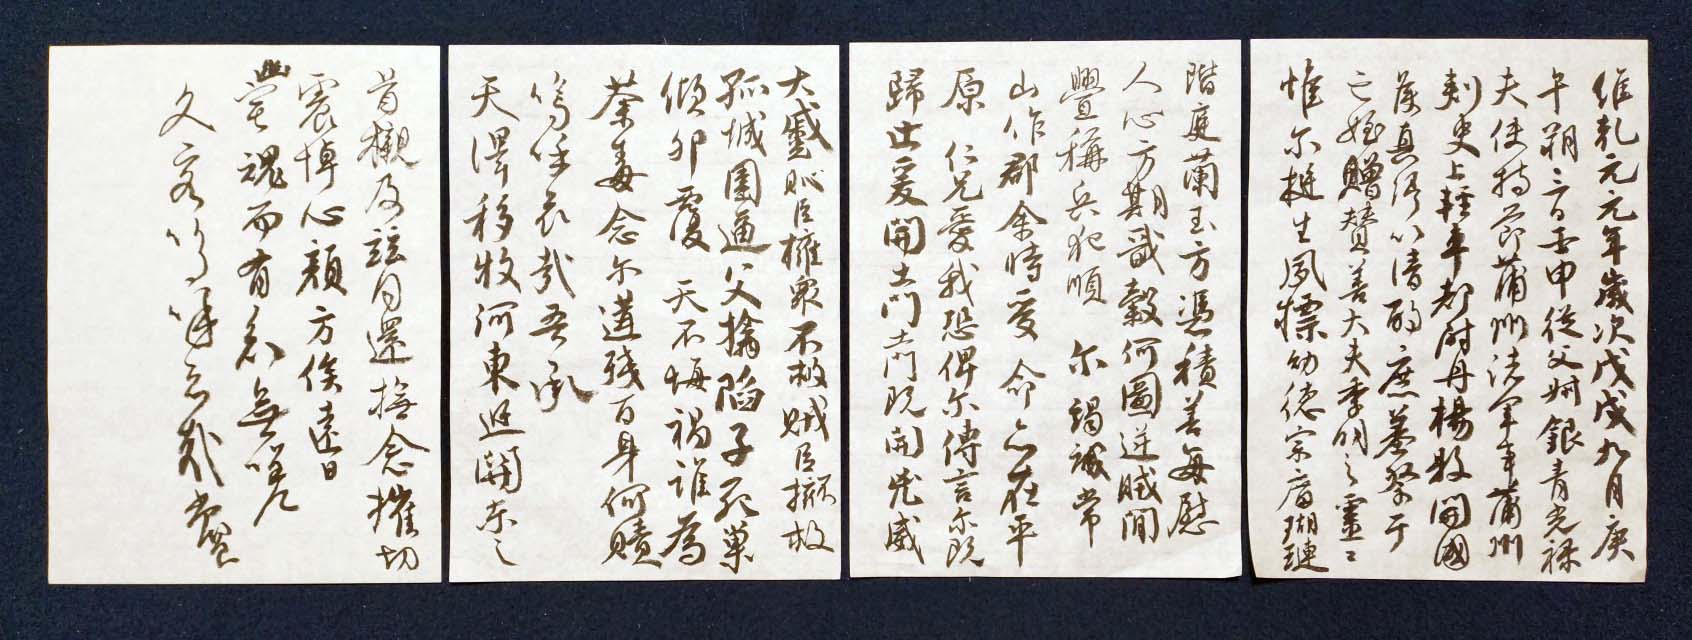 維乾元元年歲次戊戌九月庚
午朔三日壬申從父叔銀青光祿
夫使持節蒲州諸軍事蒲州
刺史上輕車都尉丹楊縣開國
侯真卿以清酌庶羞祭于
亡姪贈贊善大夫季明之靈曰
惟爾挺生夙標幼德宗廟瑚璉
階庭蘭玉方憑積善每慰
人心方期戩穀何圖逆賊閒
釁稱兵犯順 尔竭誠常
山作郡余時受命亦在平
原仁兄愛我恐俾尔傳言尔既
歸止爰開土門土門既開兇威
大蹙賊臣擁眾不救賊臣擁救
孤城圍逼父擒陷子死巢
傾卵覆 天不悔禍誰為
荼毒念尔遘殘百身何贖
嗚呼哀哉吾承
天澤移牧河東近關
首櫬及茲同還撫念摧切
震悼心顏方俟遠日
魂而有知無嗟
久客嗚呼哀哉尚饗